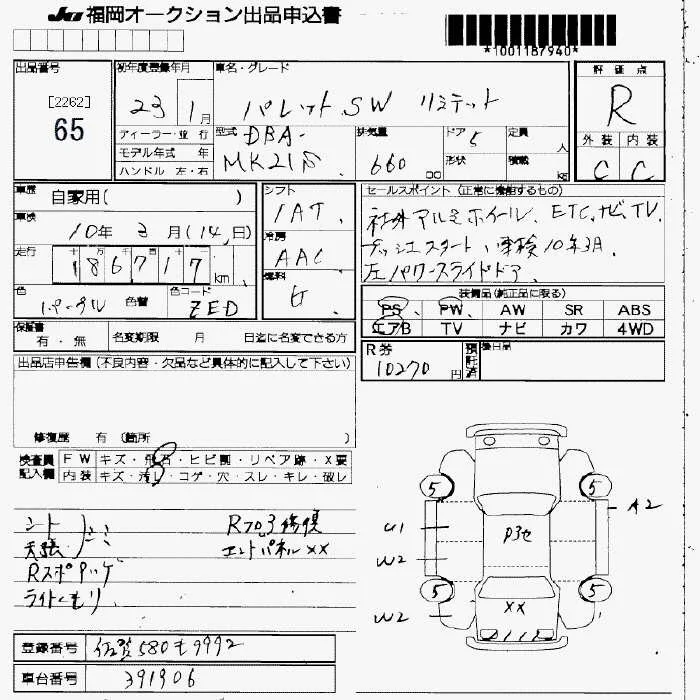 JU 福岡オークション出品申込書
*1001187940*
出品番号
[2262]
65
初年度登録年月
23 1月
車名・グレード
パレット SW リミテット
評価点
R
ディーラー・並行
モデル年式 年
ハンドル 左・右
型式 DBA-
MK21S
排気量
660 cc
ドア 5
形状
定員 人
積載 kg
外装 内装
C C
車歴 自家用( )
車検 10年 3月(14日)
走行 十万千百十
186717 km
色 パープル 色替 色コード ZED
シフト
IAT.
冷房
AAC
燃料
G
セールスポイント (正常に機能するもの)
社外アルミホイール、ETC、ナビ、TV、
プッシュスタート、車検10年3月
左パワースライドドア
装備品(純正品に限る)
PS PW AW SR ABS
エアB TV ナビ カワ 4WD
保証書
有・無
名変期限 月 日迄に名変できる方
R券
10270円
預託済
後日品
出品店申告欄(不良内容・欠品など具体的に記入して下さい)
修復歴 有 (箇所 )
検査員記入欄
FW キズ・飛石・ヒビ割・リペア跡・X要
内装 キズ・汚れ・コゲ・穴・スレ・キレ・破レ
シート
天張
Rフロア修復
エンドパネル××
Rスポ
ライトくもり
5
5
5
5
A2
U1
W2
W2
××
登録番号 佐賀 580 モ 9992
車台番号 391906